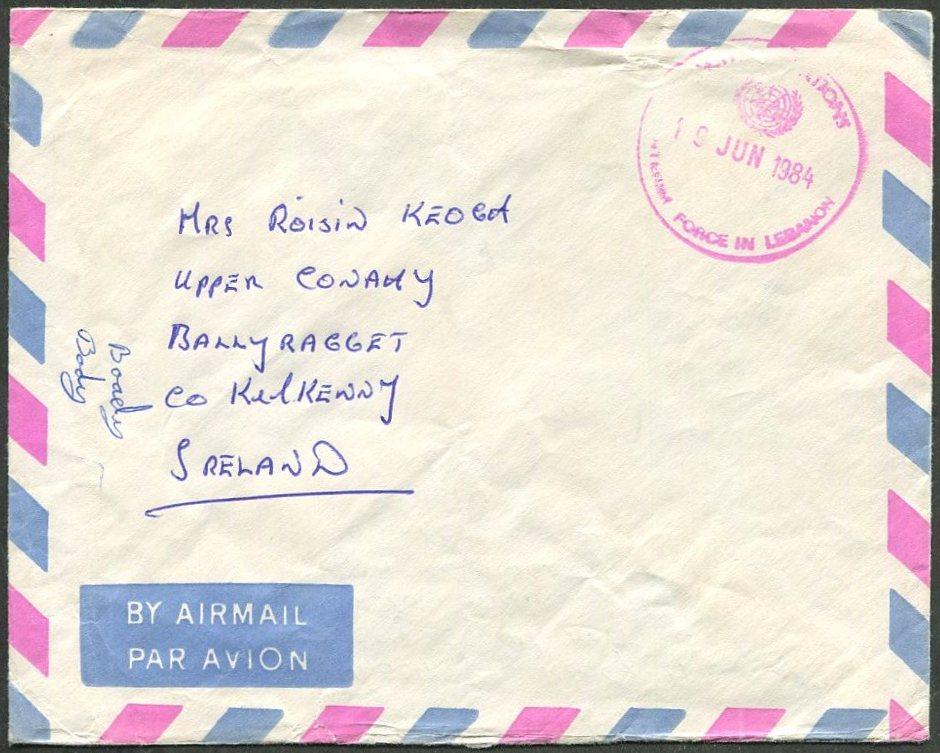 UNITED NATIONS
19 JUN 1984
INTERIM FORCE IN LEBANON
MRS RÓISIN KEOGH
UPPER CONAHY
BALLYRAGGET
CO KILKENNY
IRELAND
Boady
Body
BY AIRMAIL
PAR AVION